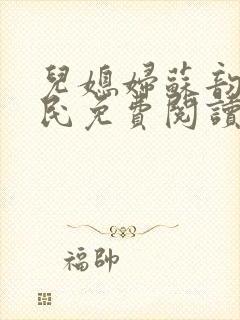 兒媳婦蘇韵
民免費閱讀
福帥